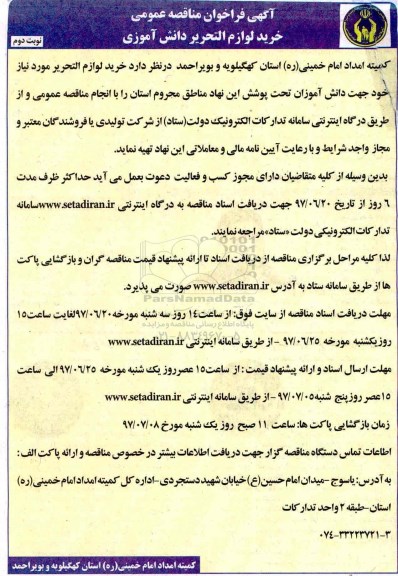 آگهی فراخوان مناقصه عمومی
خرید لوازم التحریر دانش آموزی
نوبت دوم
کمیته امداد امام خمینی(ره) استان کهگیلویه و بویراحمد درنظر دارد خرید لوازم التحریر مورد نیاز
خود جهت دانش آموزان تحت پوشش این نهاد مناطق محروم استان را با انجام مناقصه عمومی و از
طریق درگاه اینترنتی سامانه تدارکات الکترونیک دولت(ستاد) از شرکت تولیدی یا فروشندگان معتبر و
مجاز واجد شرایط و با رعایت آیین نامه مالی و معاملاتی این نهاد تهیه نماید.
بدین وسیله از کلیه متقاضیان دارای مجوز کسب و فعالیت دعوت بعمل می آید حداکثر ظرف مدت
۶ روز از تاریخ ۹۷/۰۶/۲۰ جهت دریافت اسناد مناقصه به درگاه اینترنتی www.setadiran.irسامانه
تدارکات الکترونیکی دولت «ستاد»مراجعه نمایند.
لذا کلیه مراحل برگزاری مناقصه از دریافت اسناد تا ارائه پیشنهاد قیمت مناقصه گران و بازگشایی پاکت
ها از طریق سامانه ستاد به آدرس www.setadiran.ir صورت می پذیرد.
ParsNamadData
پایگاه اطلاع رسانی مناقصه و مزایده
مهلت دریافت اسناد مناقصه از سایت فوق: از ساعت۱۴ روز سه شنبه مورخه۹۷/۰۶/۲۰لغایت ساعت۱۵
روزیکشنبه مورخه ۹۷/۰۶/۲۵ - از طریق سامانه اینترنتی www.setadiran.ir
مهلت ارسال اسناد و ارائه پیشنهاد قیمت : از ساعت۱۵ عصرروز یک شنبه مورخه ۹۷/۰۶/۲۵الی ساعت
۱۵عصر روز پنج شنبه۹۷/۰۷/۰۵ - از طریق سامانه اینترنتی www.setadiran.ir
زمان بازگشایی پاکت ها: ساعت ۱۱ صبح روز یک شنبه مورخ ۹۷/۰۷/۰۸
اطلاعات تماس دستگاه مناقصه گزار جهت دریافت اطلاعات بیشتر در خصوص مناقصه و ارائه پاکت الف :
به آدرس: یاسوج -میدان امام حسین(ع) خیابان شهید دستجردی-اداره کل کمیته امداد امام خمینی(ره)
استان-طبقه ۲ واحد تدارکات
۰۷۴-۳۳۲۲۳۷۲۱-۳
کمیته امداد امام خمینی(ره) استان کهگیلویه و بویراحمد